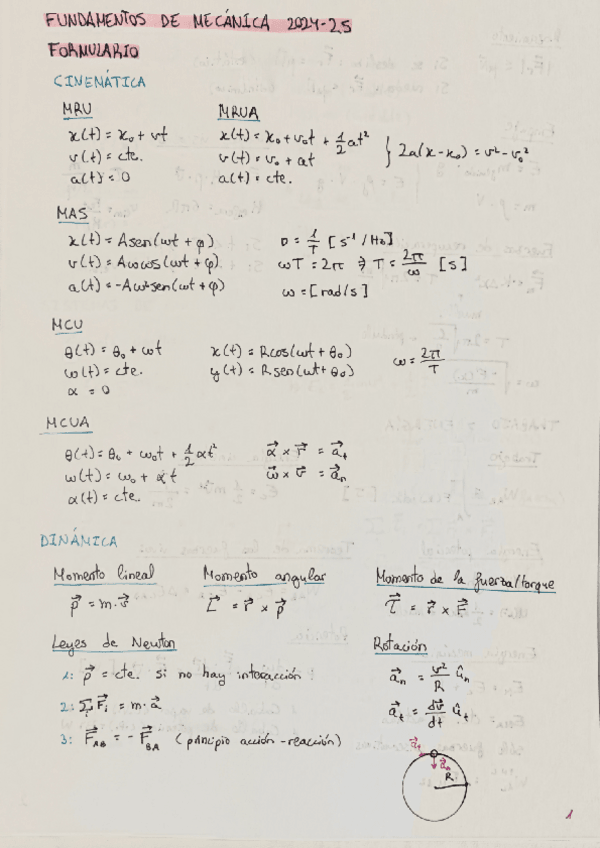 FUNDAMENTOS DE MECÁNICA 2024-25
FORMULARIO
CINEMÁTICA
MRU
x(t) = x₀ + vt
v(t) = cte.
a(t) = 0
MRUA
x(t) = x₀ + v₀t + 1/2 at²
v(t) = v₀ + at
a(t) = cte.
} 2a(x-x₀) = v² - v₀²
MAS
x(t) = Asen(ωt + φ)
v(t) = Aωcos(ωt + φ)
a(t) = -Aω²sen(ωt + φ)
υ = 1/T [s⁻¹/Hz]
ωT = 2π ⇒ T = 2π/ω [s]
ω = [rad/s]
MCU
θ(t) = θ₀ + ωt
ω(t) = cte.
α = 0
x(t) = Rcos(ωt + θ₀)
y(t) = Rsen(ωt + θ₀)
ω = 2π/T
MCUA
θ(t) = θ₀ + ω₀t + 1/2 αt²
ω(t) = ω₀ + αt
α(t) = cte.
α⃗ x r⃗ = a⃗ₜ
ω⃗ x v⃗ = a⃗ₙ
DINÁMICA
Momento lineal
p⃗ = m·v⃗
Momento angular
L⃗ = r⃗ x p⃗
Momento de la fuerza/torque
τ⃗ = r⃗ x F⃗
Leyes de Newton
1: p⃗ = cte. si no hay interacción
2: ∑F⃗ᵢ = m·a⃗
3: F⃗_AB = - F⃗_BA (principio acción-reacción)
Rotación
a⃗ₙ = v²/R ûₙ
a⃗ₜ = dv⃗/dt ûₜ
a⃗ₜ
a⃗ₙ
R
1